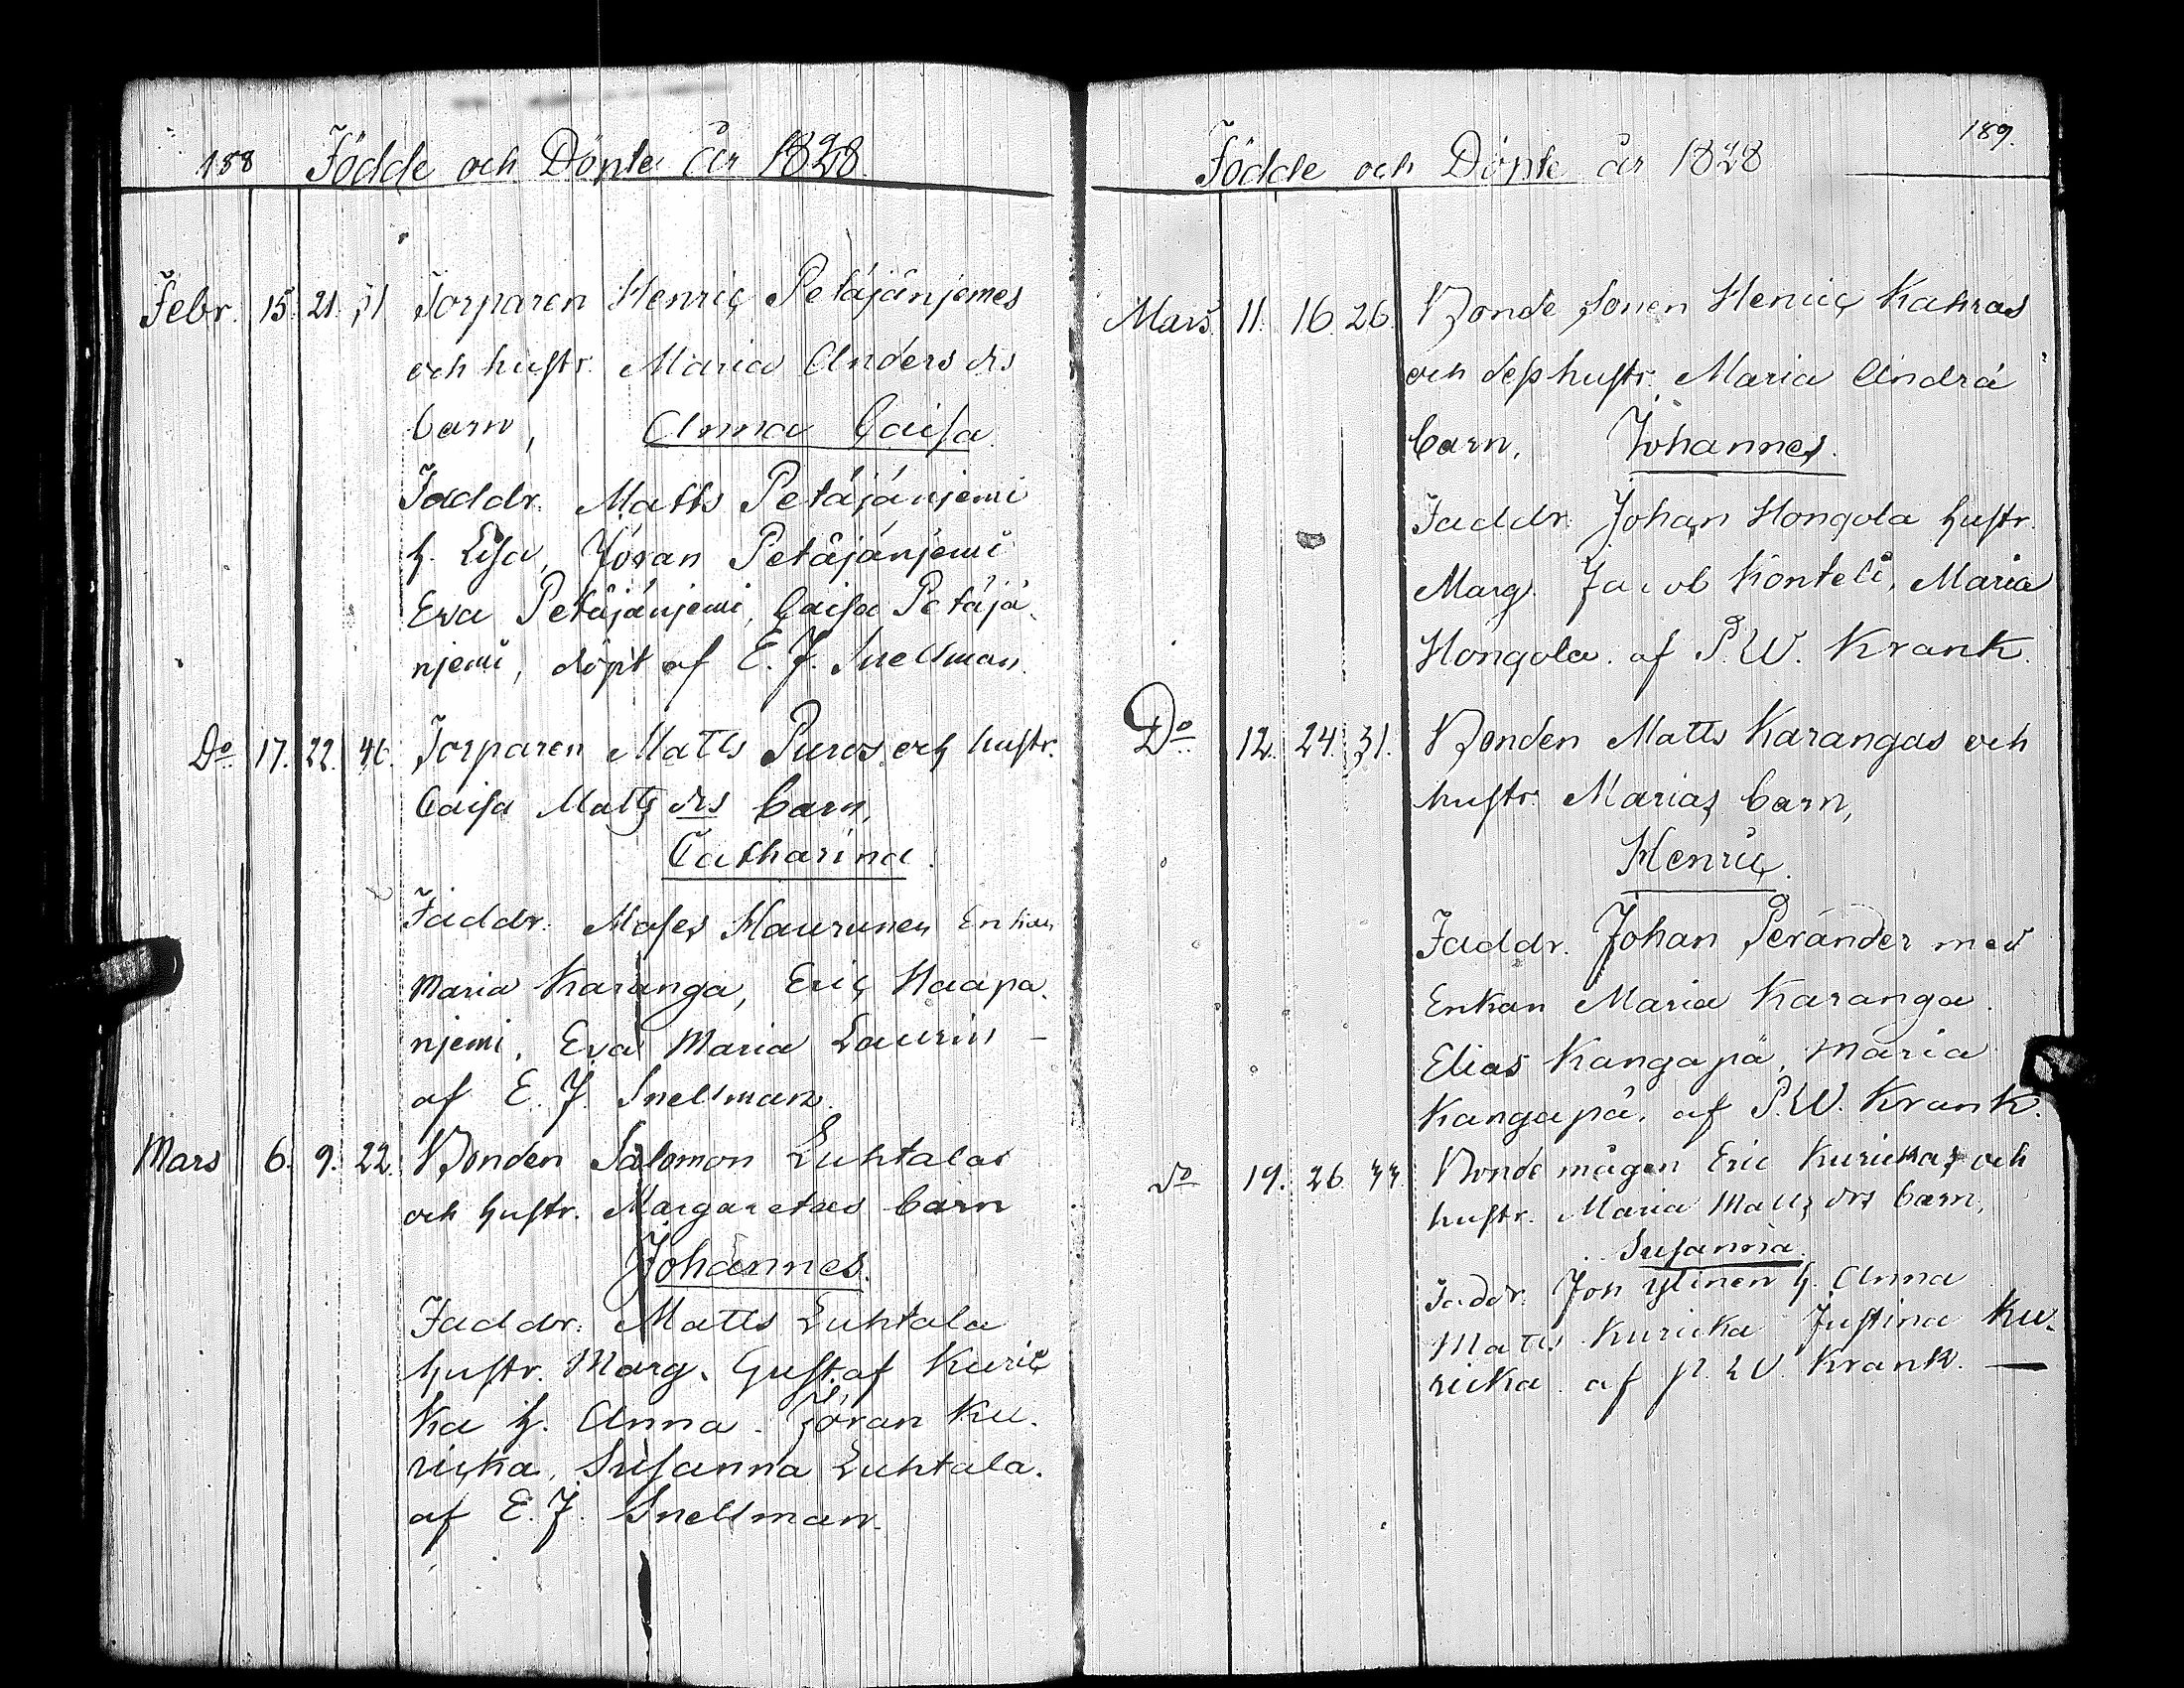 188 Födde och Döpte år 1828
Febr. 15. 21. 31 Torparen Henric Petäjänjemes
och hustr. Maria Anders drs
barn, Anna Caisa
Faddr. Matts Petäjänjemi
h. Lisa, Jöran Petäjänjemi
Eva Petäjänjemi, Caisa Petäjä
njemi, döpt af E. J. Snellman.
Do 17. 22. 46. Torparen Matts Puros och hustr.
Caisa Matts drs barn,
Catharina.
Faddr. Moses Haurunen Enkan
Maria Karanga, Eric Haapa
njemi, Eva Maria Laurin —
af E. J. Snellman.
Mars 6. 9. 22. Bonden Salomon Luhtalas
och hustr. Margaretas barn
Johannes.
Faddr. Matts Luhtala
hustr. Marg. Gustaf Kuric
ka h. Anna. Jöran Ku.
ricka, Susanna Luhtala.
af E. J. Snellman.
189.
Födde och Döpte år 1828
Mars 11. 16. 26. Bonde sonen Henric Kahras
och dess hustr. Maria Andrä
barn. Johannes.
Faddr. Johan Hongola hustr.
Marg. Jacob Könteli, Maria
Hongola. af P. W. Krank.
Do 12. 24. 31. Bonden Matts Karangas och
hustr. Marias barn,
Henric.
Faddr. Johan Perander med
Enkan Maria Karanga.
Elias Kangapä, Maria
Kangapä. af P. W. Krank.
do 19. 26. 33. Bonde mågen Eric Kurickas och
hustr. Maria Matts drs barn,
Susanna.
Faddr. Joh Ylinen h. Anna
Matts Kuricka Justina Ku-
ricka. af P. W. Krank. —